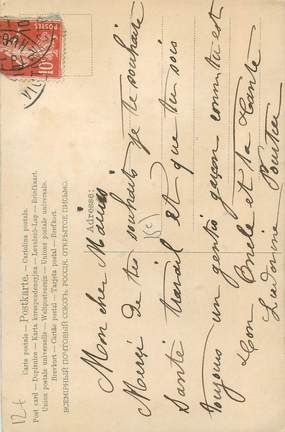 Carte postale — Postkarte. — Cartolina postale.
Post card — Dopisnice — Karta korespondencyjna — Levelező-Lap — Briefkaart.
Union postale universelle — Weltpostverein — Unione postale universale.
Brevkort — Cartão postal — Tarjeta postal — Brefkort.
ВСЕМІРНЫЙ ПОЧТОВЫЙ СОЮЗЪ. РОССІЯ. ОТКРЫТОЕ ПИСЬМО.
Adresse:
Mon cher
Merci de tes souhaits je te souhaite
santé travail et que tu sois
toujours un gentil garçon
Ton Oncle et ta tante
POSTES
10
12+
15c